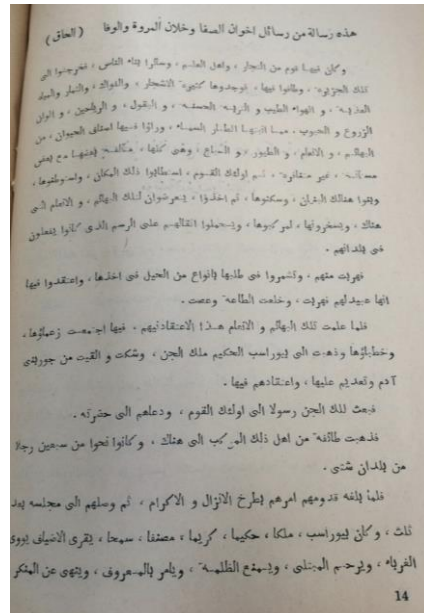 هذه رسالة من رسائل اخوان الصفا وخلان المروة والوفا ( الحاق )
وكان فيها قوم من التجار ، واهل العلم ، وسائر ابناء الناس ، فخرجوا الى
تلك الجزيرة ، وطافوا فيها ، فوجدوها كثيرة الاشجار ، والفواكه ، والثمار والمياه
العذبة ، و الهواء الطيب و التربة الحسنة ، و البقول ، و الرياحين ، و الوان
الزروع و الحبوب ، مما انبتها امطار السماء ، وراوا فيها اصناف الحيوان ، من
البهائم ، و الانعام ، و الطيور ، و السباع ، وهى كلها ، متالفة بعضها مع بعض
مستانسة ، غير متنافرة ، ثم اولئك القوم ، استطابوا ذلك المكان ، واستوطنوها ،
وبنوا هنالك البنيان ، وسكنوها ، ثم اخذوا ، يعرضوان لتلك البهائم ، و الانعام التى
هناك ، ويسخرونها ، لمركبوها ، ويحملوا اثقالهم على الرسم الذى كانوا يفعلون
فى بلدانهم .
فهربت منهم ، وتشمروا فى طلبها بانواع من الحيل فى اخذها ، واعتقدوا فيها
انها عبيد لهم فهربت ، وخلعت الطاعة وعصت .
فلما علمت تلك البهائم و الانعام هذا الاعتقاد فيهم . فيها اجتمعت زعماؤها ،
وخطباؤها وذهبت الى بيوراسب الحكيم ملك الجن ، وشكت و القيت من جور بنى
آدم وتعديهم عليها ، واعتقادهم فيها .
فبعث تلك الجن رسولا الى اولئك القوم ، ودعاهم الى حضرته .
فذهبت طائفة من اهل ذلك المركب الى هناك ، وكانوا نحوا من سبعين رجلا
من بلدان شتى .
فلما بلغه قدومهم امرهم بطرح الانزال و الاكرام ، ثم وصلهم الى مجلسه بعد
ثلث ، وكان بيوراسب ، ملكا ، حكيما ، كريما ، مصنفا ، سمحا ، يقرى الاضياف يووى
الغرباء ، ويرحم المبتلى ، ويمنع الظلمة ، ويامر بالمعروف ، وينهى عن المنكر
14